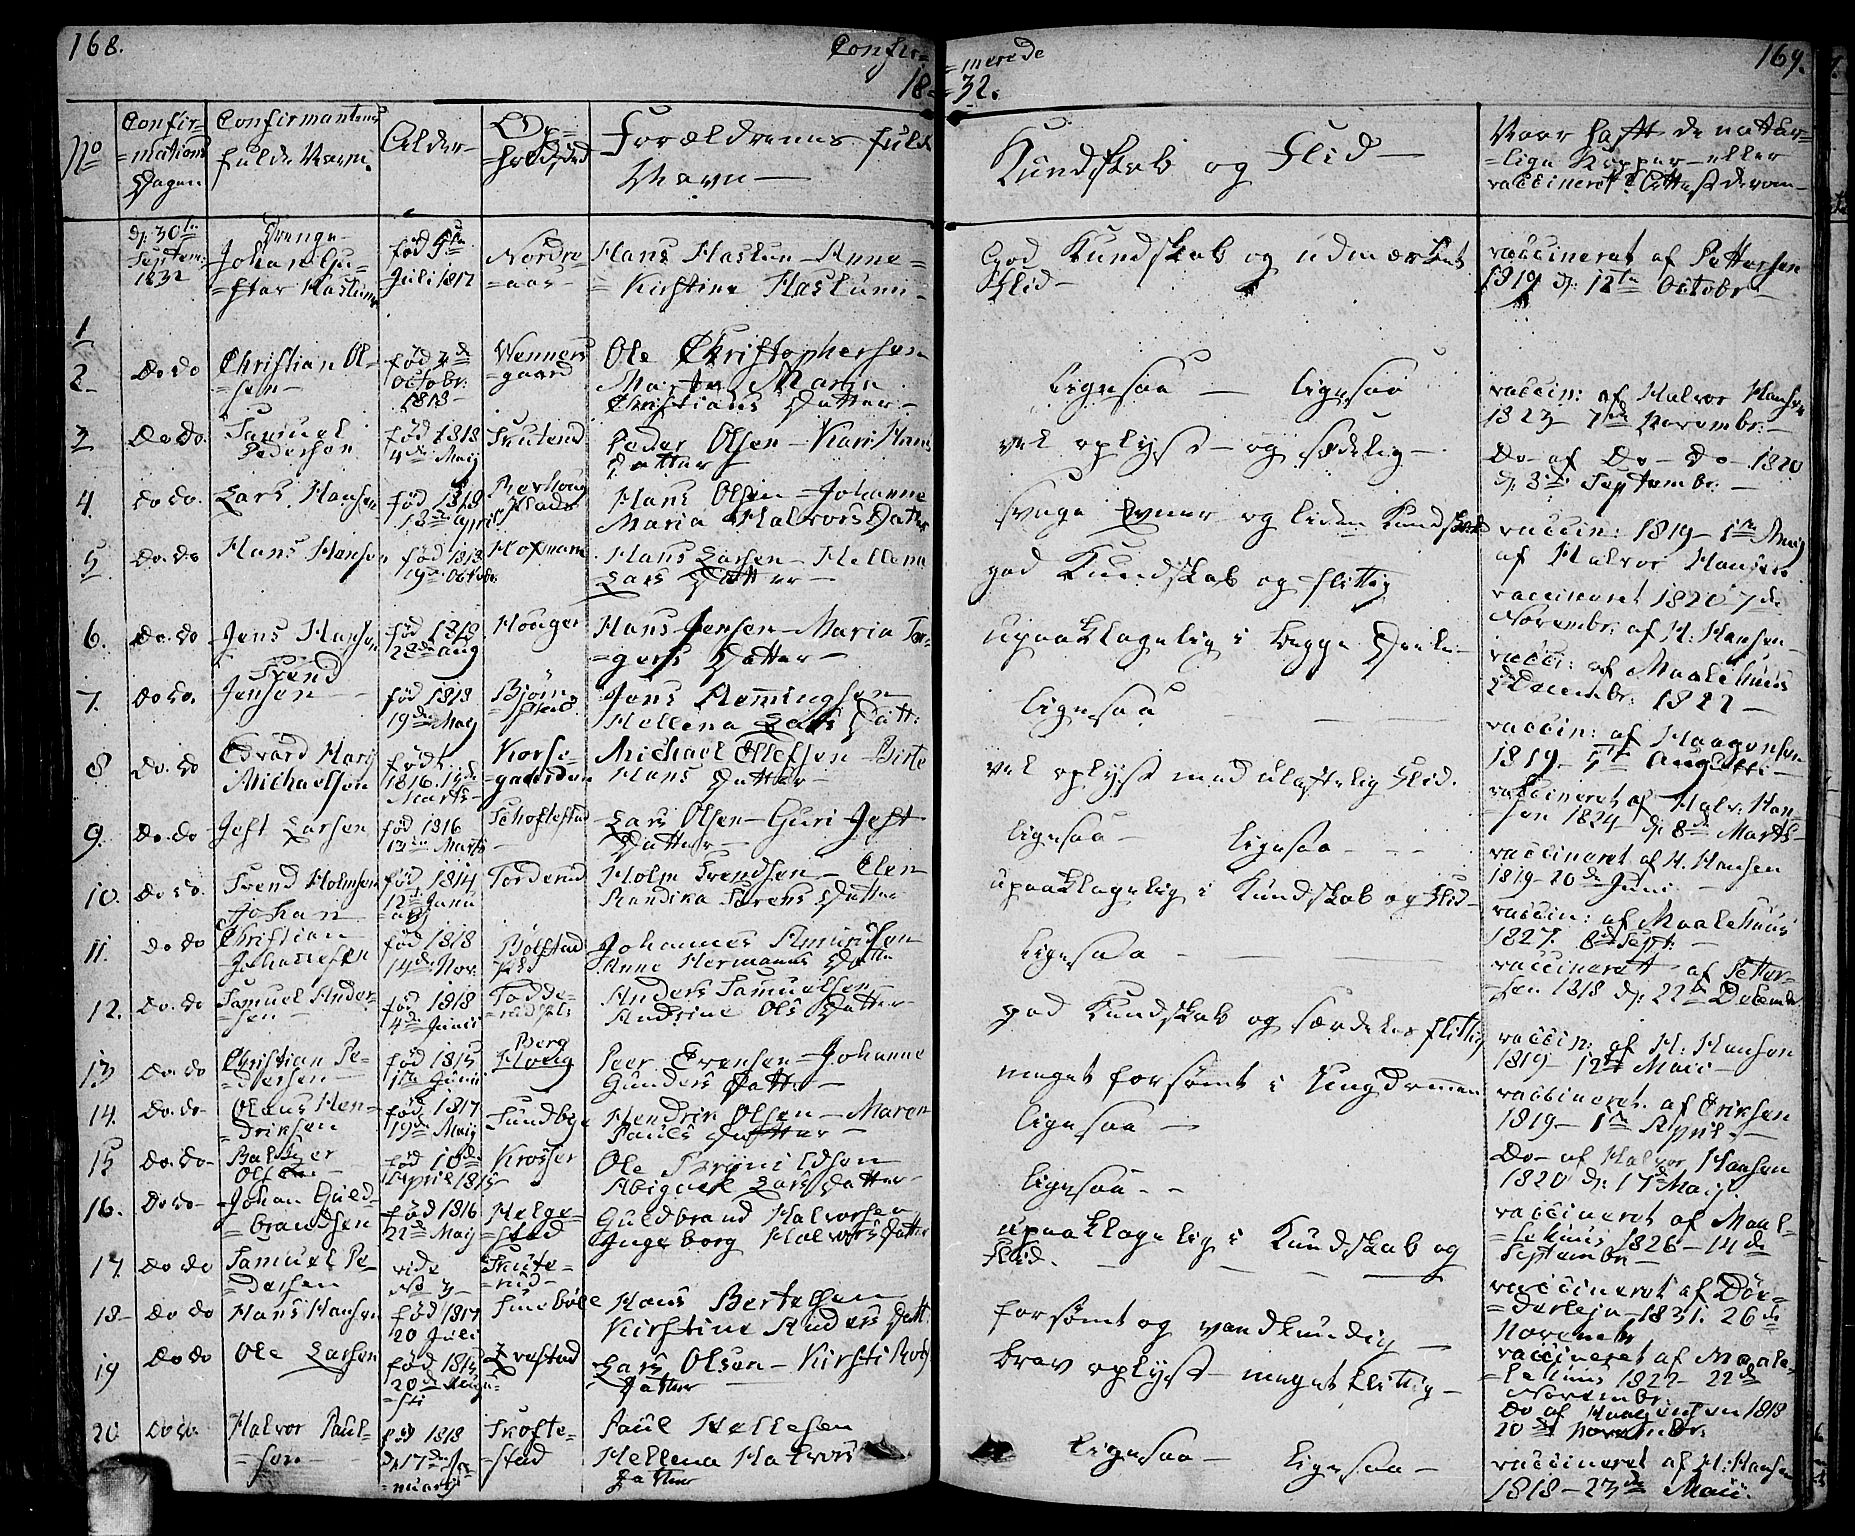 168.
Confir=
=merede
169.
18=
=32.
No
Confir=
=mations
Dagen
Confirmantens
fulde Navn.
Alder
Op=
=holdsted
Forældrenes fulde
Navn
Kundskab og Flid
=lige Kopper eller
d: 30te
Septem:
1832
Drenge
Johan Gu=
=stav Haslum
født 5te
Juli 1817
Nordre
=aas
Hans Haslum Anne=
=Kirstine Haslum
God Kundskab og udmærket
Flid
vaccineret af Pettersen
1819 d: 12te Octobr
1
2
Do do
Christian Ol=
=sen
Octobr.
1818
Wenners
=gaard
Ole Christophersen
Marthe Maria
Christians Datter
ligesaa ligesaa
vaccin: af Halvor Hansen
1823 7de Novembr.
3
Do do.
Samuel
Pedersen
født 1818
4de Maij
Peder Olsen Kari Hans
Datter
vel oplyst og sædelig
Do af Do do 1820
d: 3die Septembr.
4.
do do.
Lars Hansen
født 1818
Hans Olsen Johanne
Maria Halvors Datter
svage Evner og liden Kundskab
vaccin: 1819 1te Maij
af Halvor Hansen
5
do. do
Hans Hansen
født 1818
19de Octobr
Hans Larsen Hellena
Lars Datter
god Kundskab og flittig
vaccineret 1820 7de
Novembr. af H: Hansen
6.
do. do
Jens Hansen
født 1818
28de Aug
Houger
Hans Jensen Maria Tor=
=gers Datter
upaaklagelig i begge Dele
vacci: af Maalehuus
Decembr. 1822
7.
do do.
Svend
Jensen
født 1818
19de Maij
Jens Flemingsen
Hellena Lars Datt:
ligesaa
vaccin: af Haagensen
1819 5te Augusti
8
do. do
Edvard Hans
Michaelson
født
1816. 19de
Marts
Korse=
=gaarden
Michael Ellefsen Birte
Hans Datter
vel oplyst med ulastelig Flid.
vaccineret af Halv: Han=
=sen 1824 d: 8de Marts
9.
do. do
Jest Larsen
født 1816
13de Marts
Schoftestad
Lars Olsen Guri Jest
Datter
ligesaa ligesaa
vaccineret af H. Hansen
1819 20de Juni
10.
do do.
Svend Holmsen
født 1814
12te Janu
Torderud
Holm Svendsen Elen
Randika Sørens Datter
upaaklagelig i Kundskab og Flid
vaccin: af Maalehuus
1827. 8de Sept.
11.
do do
Johan
Christian
Johannesen
født 1818
14de Nov.
Bølstad
Johannes Amundsen
Anne Hermanns Datter
ligesaa
vaccineret af Petter=
=sen 1818 d: 22de Decemb
12.
do. do
Samuel Ander=
=sen
født 1818
4de Junii
Anders Samuelsen
Andrine Ols Datter
god Kundskab og særdeles flittig
vaccin: af H: Hansen
1819 12te Maii
13
do. do
Christian Pe=
=dersen
født 1815
1te Junii
Berg
Houg
Peer Evensen Johanne
Gunders Datter
meget forsømt i Ungdommen
vaccineret af Eriksen
1819 1te April.
14.
do. do
Olaus Hen=
=driksen
født 1817
19de Maij
Sundbye
Hendrik Olsen Maren
Pauels Datter
ligesaa
Do af Halvor Hansen
1820 d: 17de Maij
15
do. do
Baltzer
Olsen
født 18de
April 1815
Krosser
Ole Brynildsen
Abigael Lars Datter
ligesaa
vaccineret af Maal=
=lehuus 1826 14de
Septembr.
16.
do do
Johan Guld=
=brandsen
født 1816
22de Maij
Helge=
=stad
Guldbrand Halvorsen
Ingeborg Halvors Datter
upaaklagelig i Kundskab og
Flid.
17.
do do
Samuel Pe=
=dersen
vide
No 3
Skute=
=rud
vaccineret af Dör=
=derlejn 1831. 26de
Novembr
18
do do
Hans Hansen
født 1817
20 Juli
Finebøle
Hans Bertelsen
Kirstine Anders Datt
forsømt og vankundig
vaccineret af Maale=
=lehuus 1822 22de
Novembr.
19
do do
Ole Larsen
født 1815
20de Augu=
=sti
Lars Olsen Kirsti
Datter
brav oplyst meget flittig
Do af Haagensen 1818
20de Novembr.
20
do do.
Halvor Paul=
=sen
født 1818
d: 17de Ja=
=nuarij
Skofte=
=stad
Paul Hellesen
Hellena Halvors
Datter
ligesaa ligesaa
vaccineret af H: Hansen
1818 23de Maii.